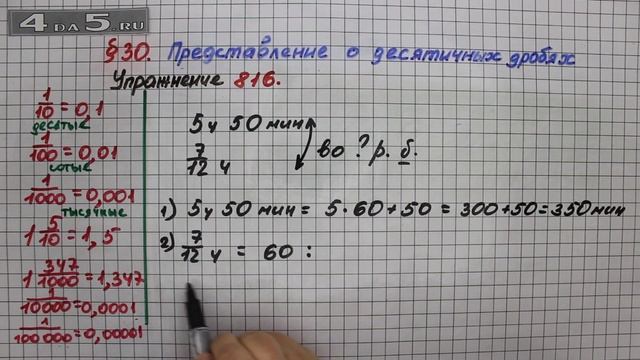 4 DA 5.RU
§30. Представление о десятичных дробях
Упражнение 816.
1/10 = 0,1
десятые
1/100 = 0,01
сотые
1/1000 = 0,001
тысячные
1 5/10 = 1,5
1 347/1000 = 1,347
1/10000 = 0,0001
1/100000 = 0,00001
5 ч 50 мин
7/12 ч
во ? р. б.
1) 5 ч 50 мин = 5·60+50 = 300+50=350 мин
2) 7/12 ч = 60 :